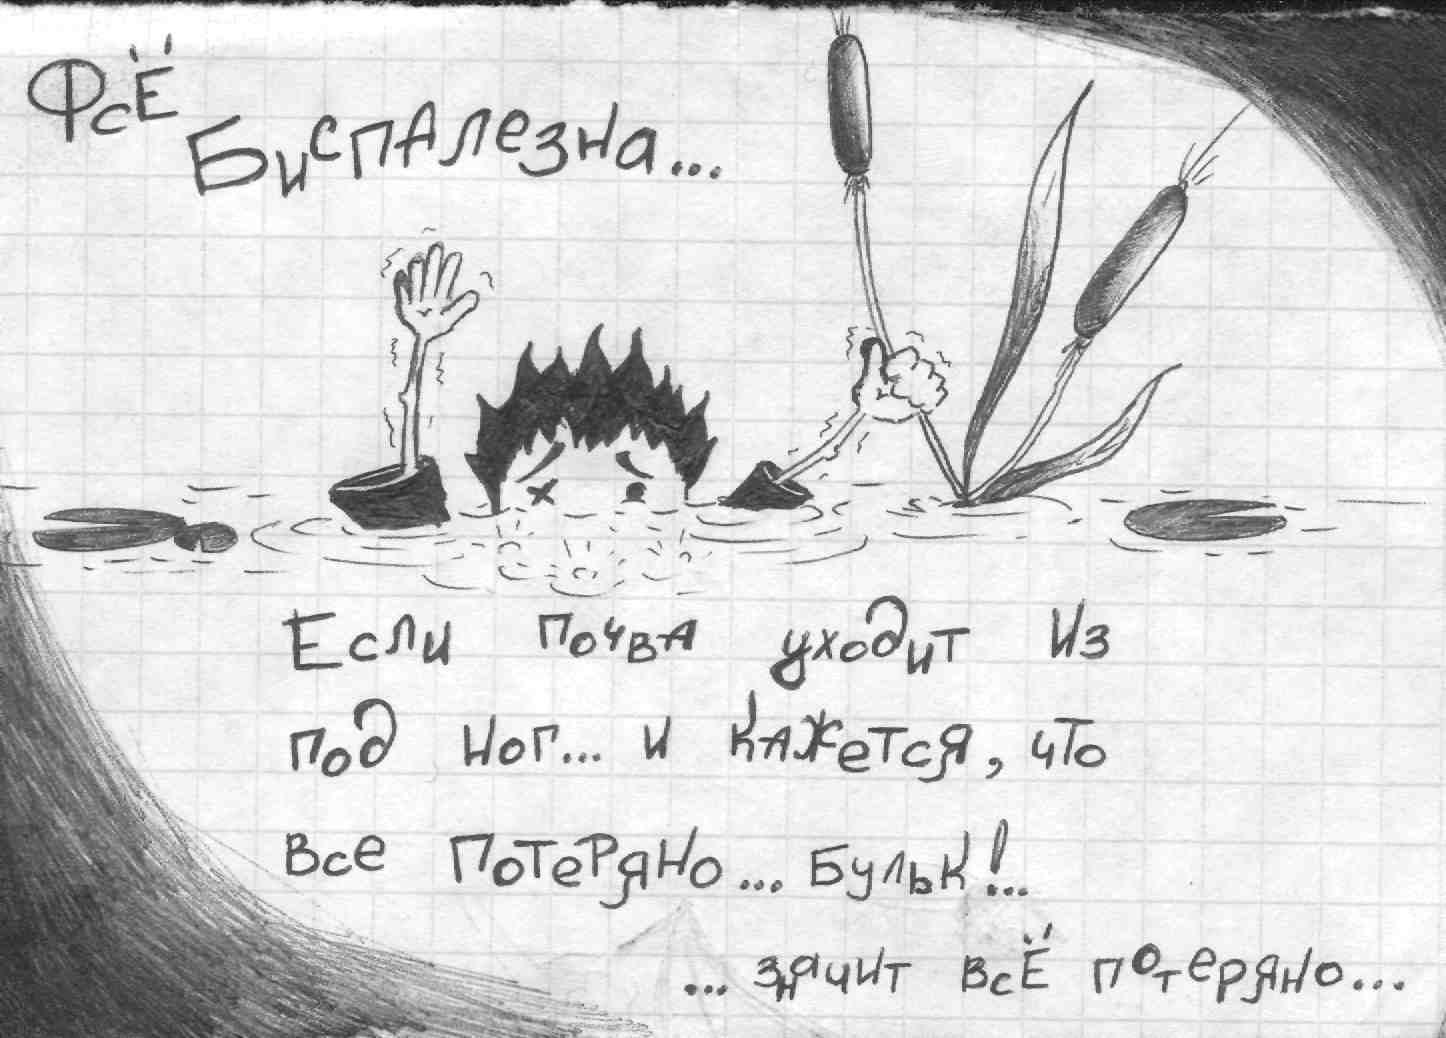 Фсё
Биспалезна...
Если почва уходит из
под ног... и кажется, что
все потеряно... Бульк!...
... значит всё потеряно...